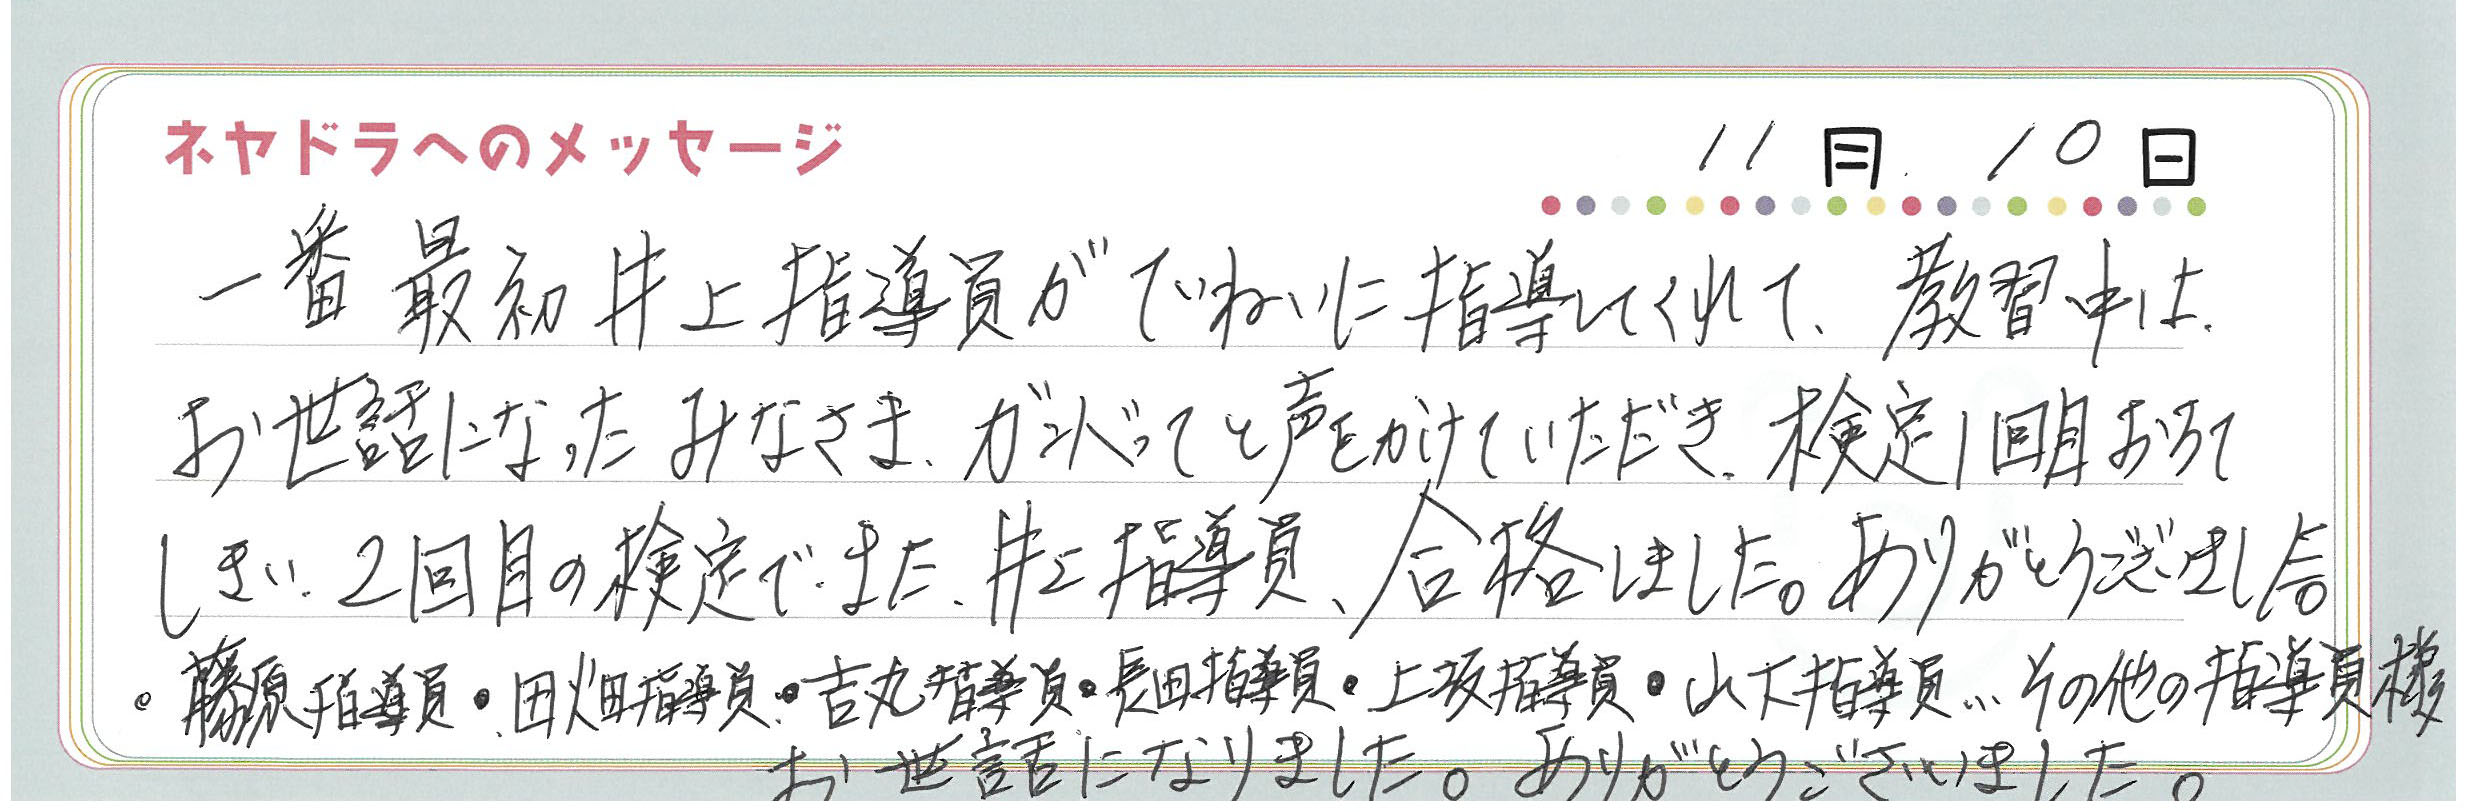 ネヤドラへのメッセージ
11月10日
一番最初井上指導員がていねいに指導してくれて、教習中は、
お世話になったみなさま、ガンバってと声をかけていただき、検定1回目おちて
しまい、2回目の検定でまた、井上指導員、合格しました。ありがとうございました。
・藤原指導員・田畑指導員・吉丸指導員・長田指導員・上坂指導員・山下指導員…その他の指導員様
お世話になりました。ありがとうございました。